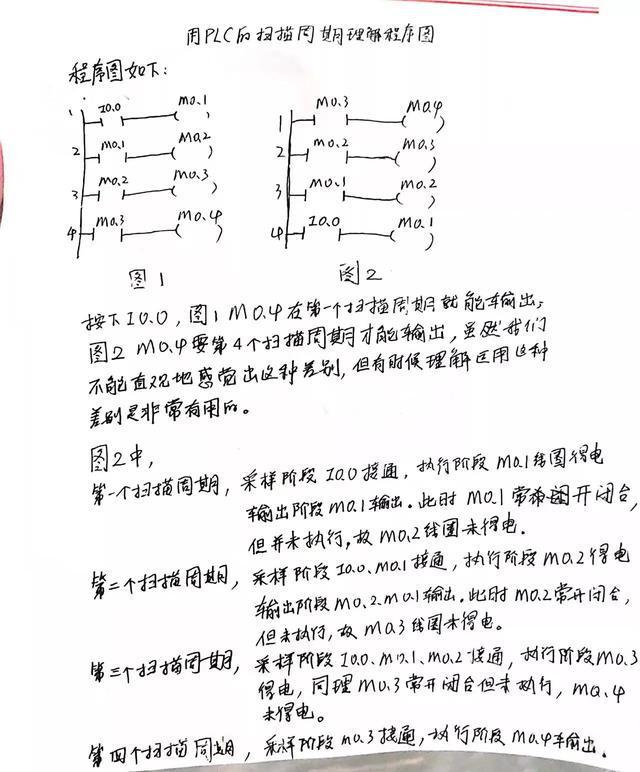 用PLC的扫描周期理解程序图
程序图如下:
1 I0.0 M0.1
2 M0.1 M0.2
3 M0.2 M0.3
4 M0.3 M0.4
图1
1 M0.3 M0.4
2 M0.2 M0.3
3 M0.1 M0.2
4 I0.0 M0.1
图2
按下I0.0,图1 M0.4在第一个扫描周期就能输出;
图2 M0.4要第4个扫描周期才能输出,虽然我们
不能直观地感觉出这种差别,但有时候理解运用这种
差别是非常有用的。
图2中,
第一个扫描周期,采样阶段I0.0接通,执行阶段M0.1线圈得电
输出阶段M0.1输出.此时M0.1常开闭合,
但并未执行,故M0.2线圈未得电.
第二个扫描周期,采样阶段I0.0、M0.1接通,执行阶段M0.2得电
输出阶段M0.2、M0.1输出.此时M0.2常开闭合,
但未执行,故M0.3线圈未得电。
第三个扫描周期,采样阶段I0.0、M0.1、M0.2接通,执行阶段M0.3
得电,同理M0.3常开闭合但未执行,M0.4
未得电。
第四个扫描周期,采样阶段M0.3接通,执行阶段M0.4输出.